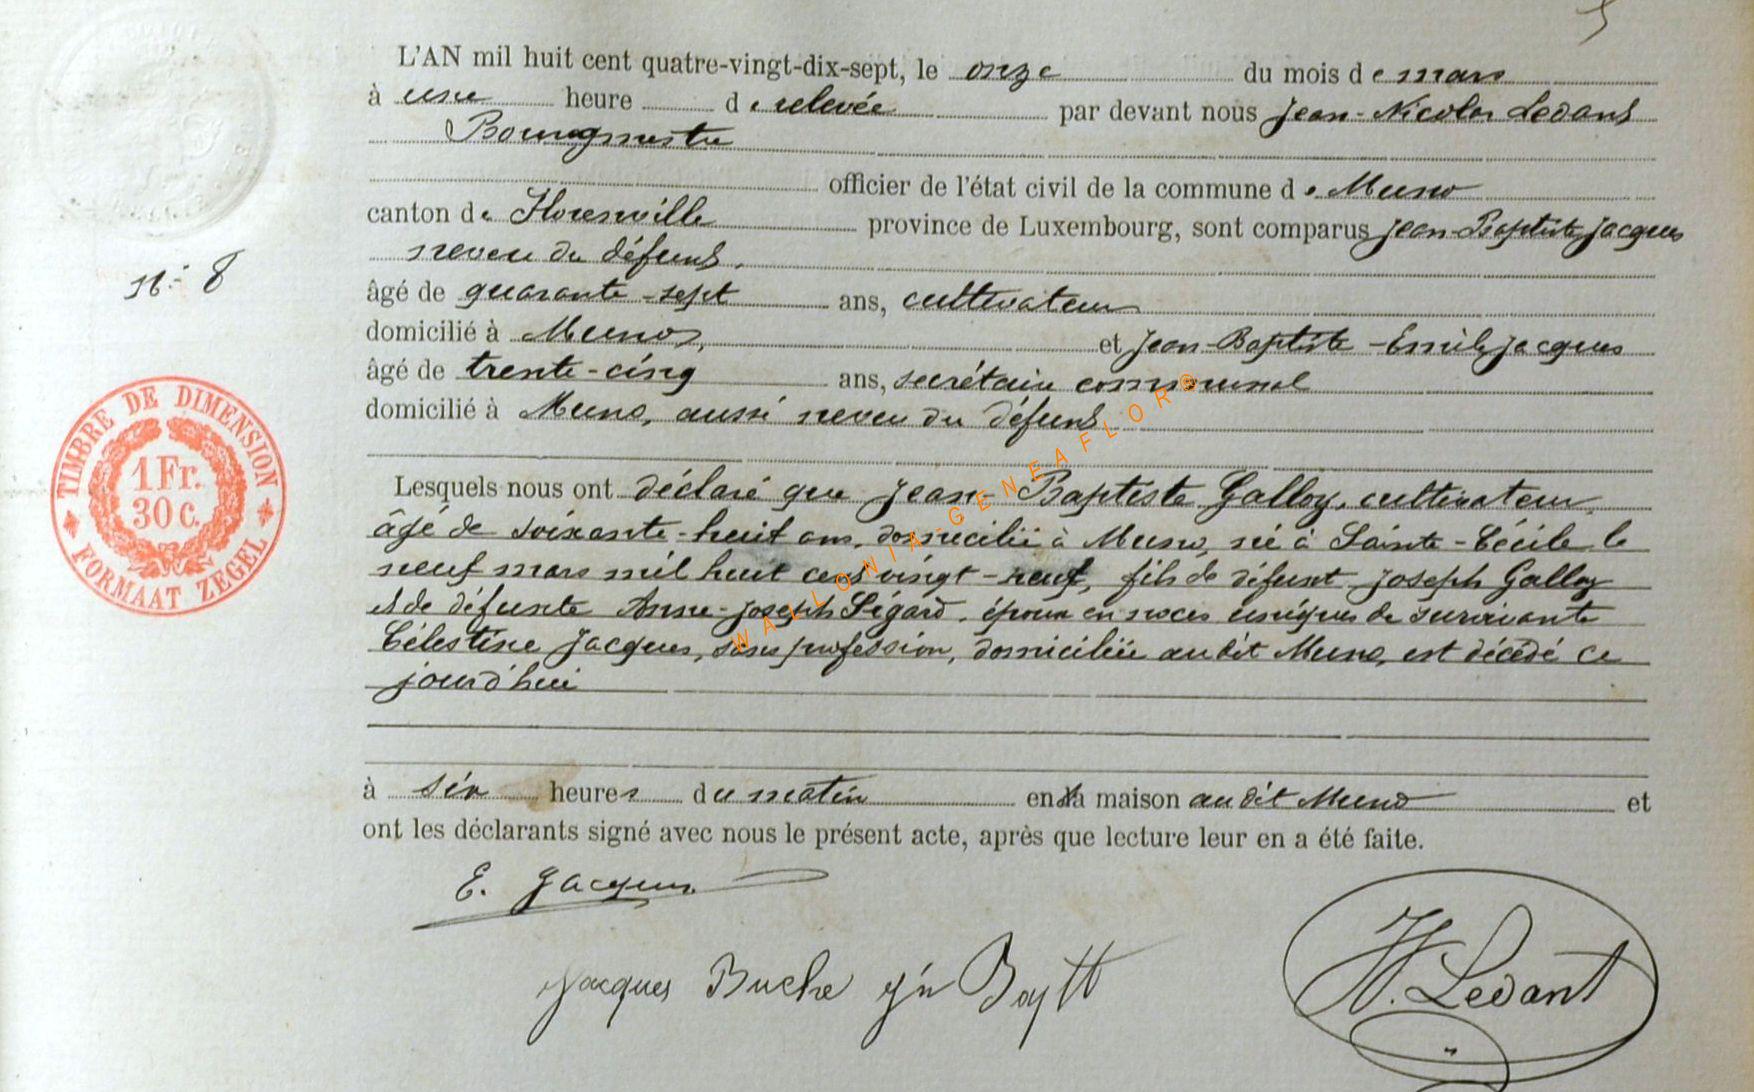 5
L'AN mil huit cent quatre-vingt-dix-sept, le onze du mois de mars
à une heure de relevée par devant nous Jean-Nicolas Ledant
Bourgmestre
officier de l'état civil de la commune de Muno
canton de Florenville province de Luxembourg, sont comparus Jean-Baptiste Jacques
neveu du défunt,
N° 8
âgé de quarante-sept ans, cultivateur
domicilié à Muno, et Jean-Baptiste-Emile Jacques
âgé de trente-cinq ans, secrétaire communal
domicilié à Muno, aussi neveu du défunt
TIMBRE DE DIMENSION
1 Fr.
30 c.
FORMAAT ZEGEL
Lesquels nous ont déclaré que Jean-Baptiste Galloy, cultivateur,
âgé de soixante-huit ans, domicilié à Muno, né à Sainte-Cécile le
neuf mars mil huit cent vingt-neuf, fils de défunt Joseph Galloy
et de défunte Anne-Joseph Ségard, époux en noces uniques de survivante
Célestine Jacques, sans profession, domiciliée audit Muno, est décédé ce
jourd'hui
à six heures du matin en sa maison audit Muno et
ont les déclarants signé avec nous le présent acte, après que lecture leur en a été faite.
E. Jacques
Jacques Buche Jn Baptt
N. Ledant
WALLONIA-GENEAFLOR©